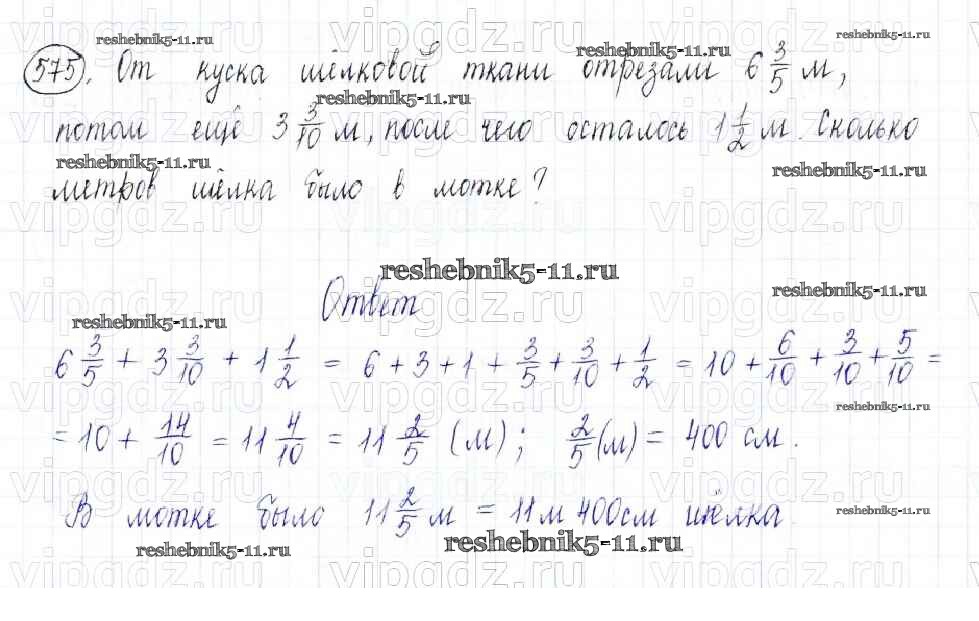 reshebnik5-11.ru
575. От куска шёлковой ткани отрезали 6 3/5 м,
потом ещё 3 3/10 м, после чего осталось 1 1/2 м. Сколько
метров шёлка было в мотке?
reshebnik5-11.ru
Ответ
6 3/5 + 3 3/10 + 1 1/2 = 6 + 3 + 1 + 3/5 + 3/10 + 1/2 = 10 + 6/10 + 3/10 + 5/10 =
= 10 + 14/10 = 11 4/10 = 11 2/5 (м); 2/5 (м) = 400 см.
В мотке было 11 2/5 м = 11 м 400 см шёлка.
reshebnik5-11.ru
vipgdz.ru